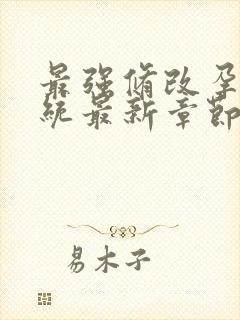 最强脩改孕
统最新章節
易木子